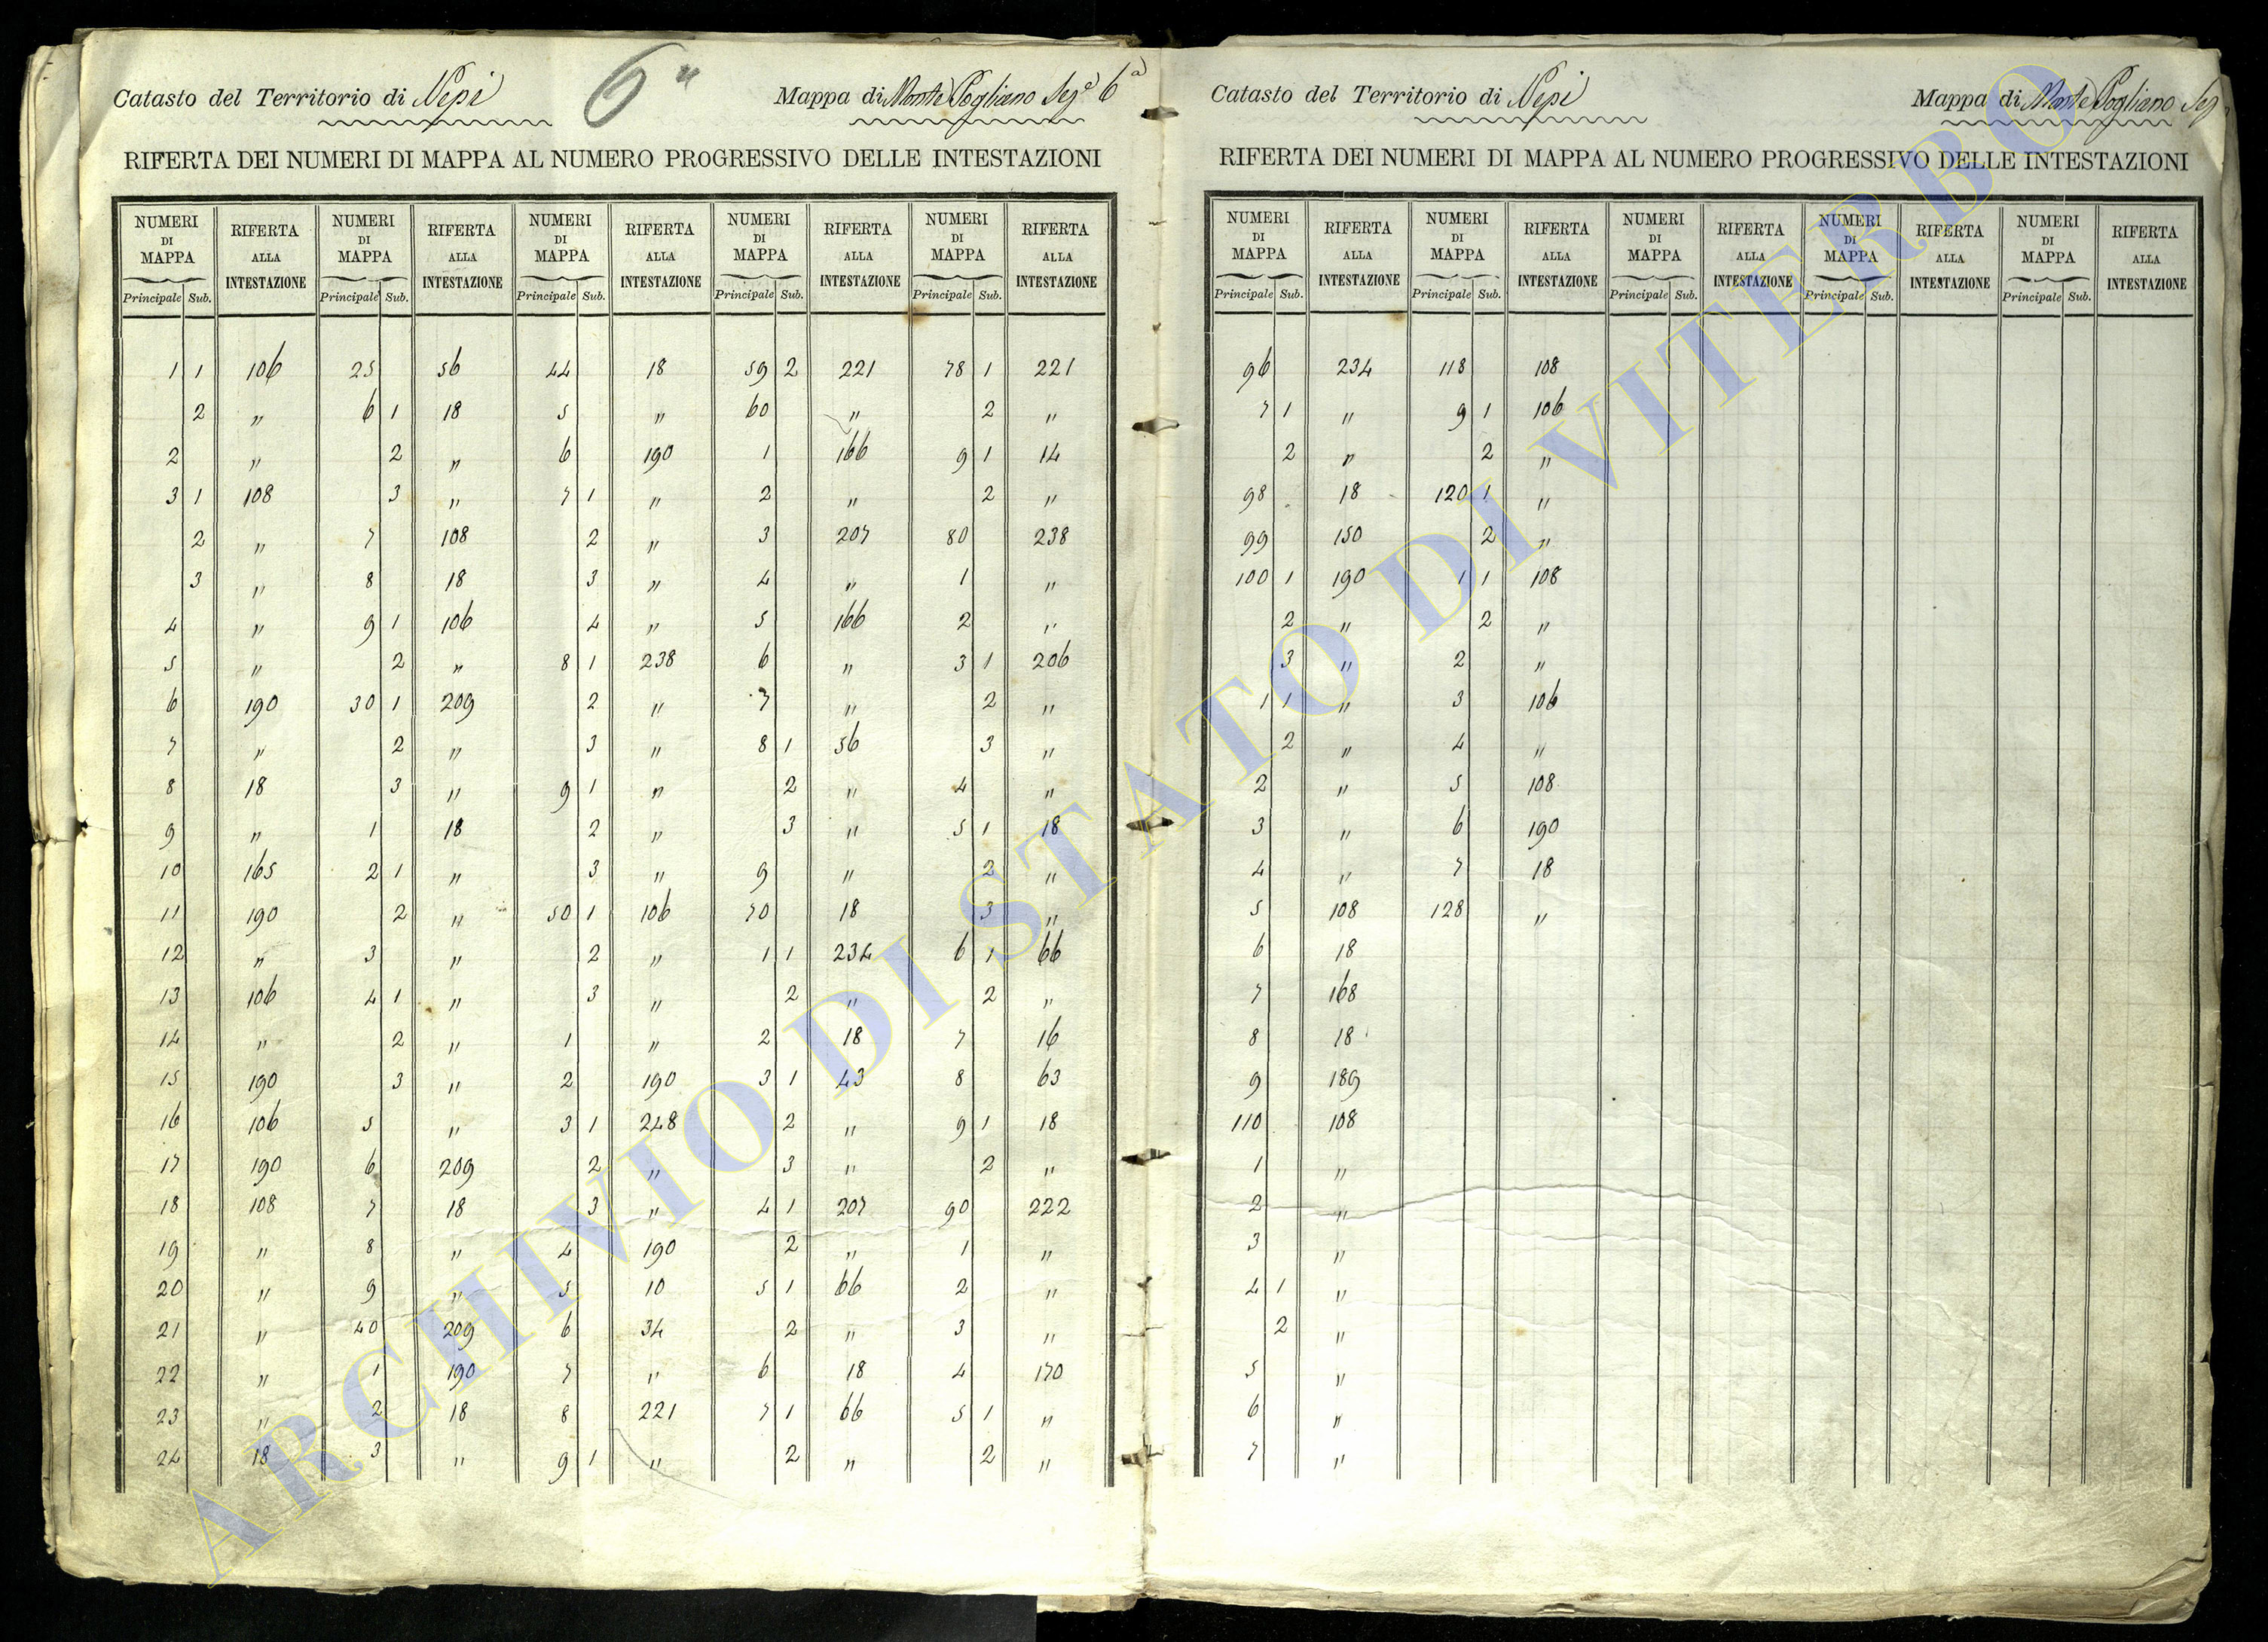 Catasto del Territorio di Nepi 6" Mappa di Monte Pogliano Sez.e 6a
RIFERTA DEI NUMERI DI MAPPA AL NUMERO PROGRESSIVO DELLE INTESTAZIONI
NUMERI DI MAPPA RIFERTA ALLA INTESTAZIONE NUMERI DI MAPPA RIFERTA ALLA INTESTAZIONE NUMERI DI MAPPA RIFERTA ALLA INTESTAZIONE NUMERI DI MAPPA RIFERTA ALLA INTESTAZIONE NUMERI DI MAPPA RIFERTA ALLA INTESTAZIONE
Principale Sub. Principale Sub. Principale Sub. Principale Sub. Principale Sub.
1 1 106 25 56 44 18 59 2 221 78 1 221
2 " 6 1 18 5 " 60 " 2 "
2 " 2 " 6 190 1 166 9 1 14
3 1 108 3 " 7 1 " 2 " 2 "
2 " 7 108 2 " 3 207 80 238
3 " 8 18 3 " 4 " 1 "
4 " 9 1 106 4 " 5 166 2 "
5 " 2 " 8 1 238 6 " 3 1 206
6 190 30 1 209 2 " 7 " 2 "
7 " 2 " 3 " 8 1 56 3 "
8 18 3 " 9 1 " 2 " 4 "
9 " 1 18 2 " 3 " 5 1 18
10 165 2 1 " 3 " 9 " 2 "
11 190 2 " 50 1 106 70 18 3 "
12 " 3 " 2 " 1 1 234 6 1 66
13 106 4 1 " 3 " 2 " 2 "
14 " 2 " 1 " 2 18 7 16
15 190 3 " 2 190 3 1 43 8 63
16 106 5 " 3 1 248 2 " 9 1 18
17 190 6 209 2 " 3 " 2 "
18 108 7 18 3 " 4 1 207 90 222
19 " 8 " 4 190 2 " 1 "
20 " 9 " 5 10 5 1 66 2 "
21 " 40 209 6 34 2 " 3 "
22 " 1 190 7 " 6 18 4 170
23 " 2 18 8 221 7 1 66 5 1 "
24 18 3 " 9 1 " 2 " 2 "
Catasto del Territorio di Nepi Mappa di Monte Pogliano Sez
RIFERTA DEI NUMERI DI MAPPA AL NUMERO PROGRESSIVO DELLE INTESTAZIONI
NUMERI DI MAPPA RIFERTA ALLA INTESTAZIONE NUMERI DI MAPPA RIFERTA ALLA INTESTAZIONE NUMERI DI MAPPA RIFERTA ALLA INTESTAZIONE NUMERI DI MAPPA RIFERTA ALLA INTESTAZIONE NUMERI DI MAPPA RIFERTA ALLA INTESTAZIONE
Principale Sub. Principale Sub. Principale Sub. Principale Sub. Principale Sub.
96 234 118 108
7 1 " 9 1 106
2 " 2 "
98 18 120 1 "
99 150 2 "
100 1 190 1 1 108
2 " 2 "
3 " 2 "
1 1 " 3 106
2 " 4 "
2 " 5 108
3 " 6 190
4 " 7 18
5 108 128 "
6 18
7 168
8 18
9 189
110 108
1 "
2 "
3 "
4 1 "
2 "
5 "
6 "
7 "
ARCHIVIO DI STATO DI VITERBO